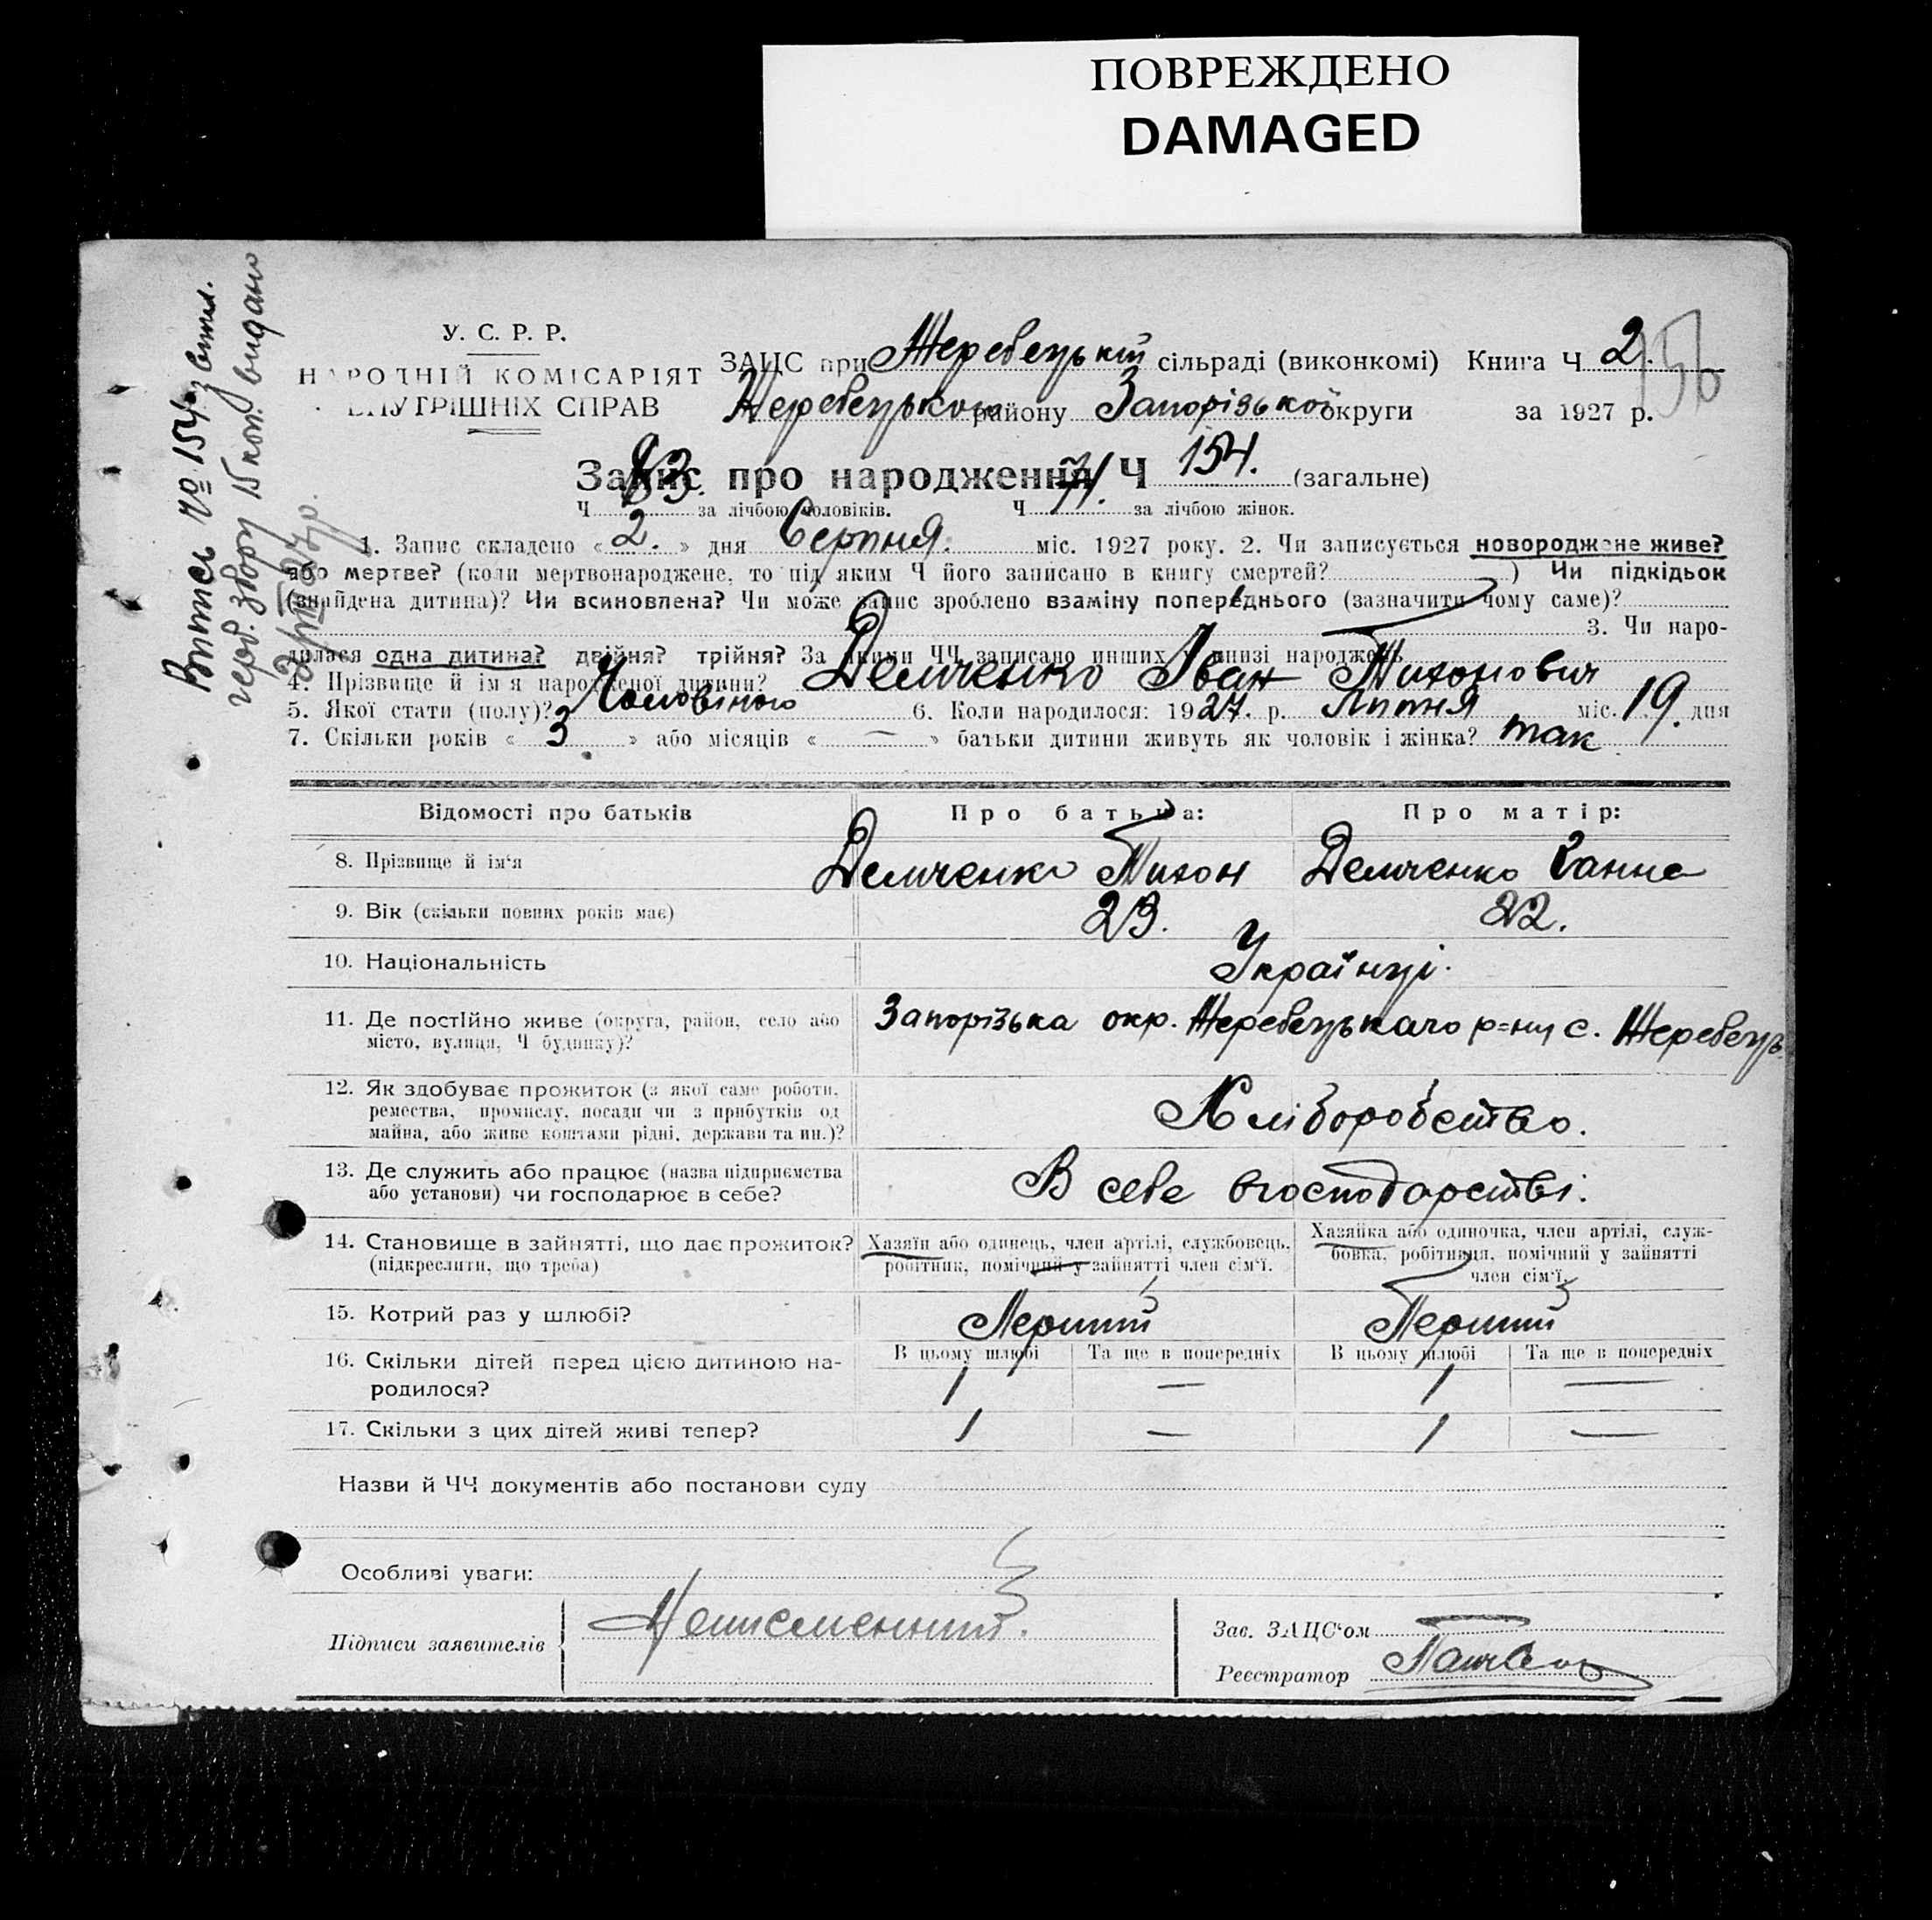 ПОВРЕЖДЕНО
DAMAGED
У. С. Р. Р.
НАРОДНІЙ КОМІСАРІЯТ
ВНУТРІШНІХ СПРАВ
ЗАЦС при Жеребецькій сільраді (виконкомі) Книга Ч 2.
156
Жеребецького району Запорізької округи за 1927 р.
Запис про народження Ч 154. (загальне)
Ч 83. за лічбою чоловіків. Ч 71. за лічбою жінок.
1. Запис складено « 2. » дня Серпня. міс. 1927 року. 2. Чи записується новороджене живе?
або мертве? (коли мертвонароджене, то під яким Ч його записано в книгу смертей? ) Чи підкідьок
(знайдена дитина)? Чи всиновлена? Чи може запис зроблено взаміну попереднього (зазначити чому саме)?
3. Чи наро-
дилася одна дитина? двійня? трійня? За якими ЧЧ записано инших у книзі народжень
4. Прізвище й ім'я народженої дитини? Демченко Іван Тихонович
5. Якої стати (полу)? Чоловічого 6. Коли народилося: 1927. р. Липня міс. 19. дня
7. Скільки років « 3 » або місяців « — » батьки дитини живуть як чоловік і жінка? так
Відомості про батьків Про батька: Про матір:
8. Прізвище й ім'я Демченко Тихон Демченко Ганна
9. Вік (скільки повних років має) 23. 22.
10. Національність Українці.
11. Де постійно живе (округа, район, село або
місто, вулиця, Ч будинку)? Запорізька окр. Жеребецькаго р-ну с. Жеребець
12. Як здобуває прожиток (з якої саме роботи,
ремества, промислу, посади чи з прибутків од
майна, або живе коштами рідні, держави та ин.)? Хліборобство.
13. Де служить або працює (назва підприємства
або установи) чи господарює в себе? В себе вгосподарстві.
14. Становище в зайнятті, що дає прожиток?
(підкреслити, що треба)
Хазяїн або одинець, член артілі, службовець,
робітник, помічний у зайнятті член сім'ї.
Хазяйка або одиночка, член артілі, служ-
бовка, робітниця, помічний у зайнятті
член сім'ї.
15. Котрий раз у шлюбі? Перший Перший
В цьому шлюбі Та ще в попередніх В цьому шлюбі Та ще в попередніх
16. Скільки дітей перед цією дитиною на-
родилося? 1 — 1 —
17. Скільки з цих дітей живі тепер? 1 — 1 —
Назви й ЧЧ документів або постанови суду
Особливі уваги:
Підписи заявителів Неписменний.
Зав. ЗАЦС'ом
Реєстратор
Витись № 154 з втил.
герб. збору 15 коп. видано